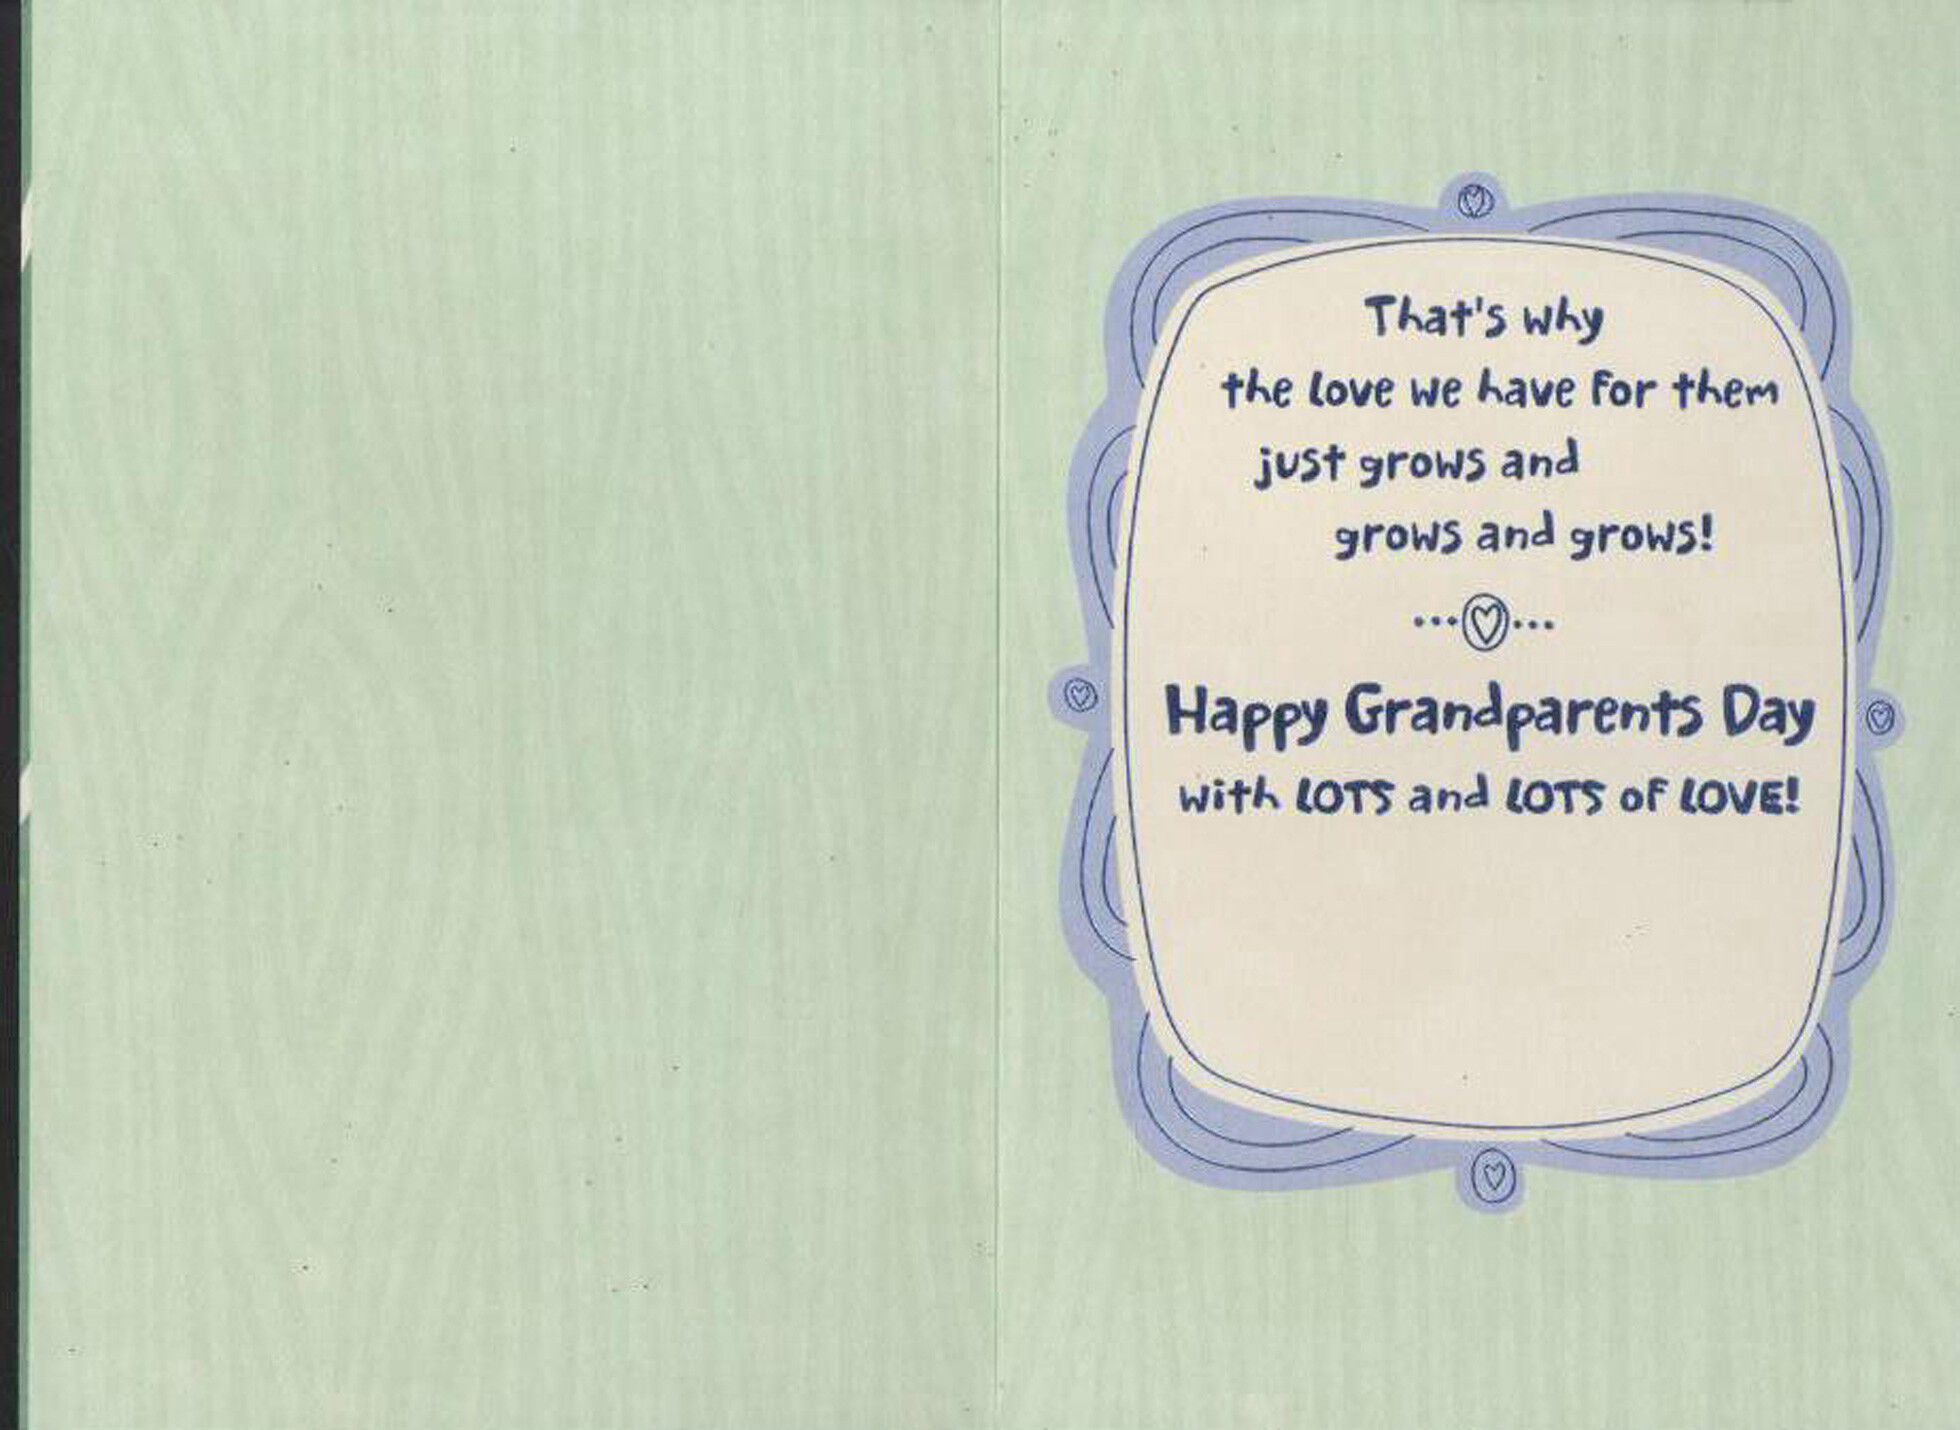 That's why
the love we have for them
just grows and
grows and grows!
Happy Grandparents Day
with LOTS and LOTS of LOVE!